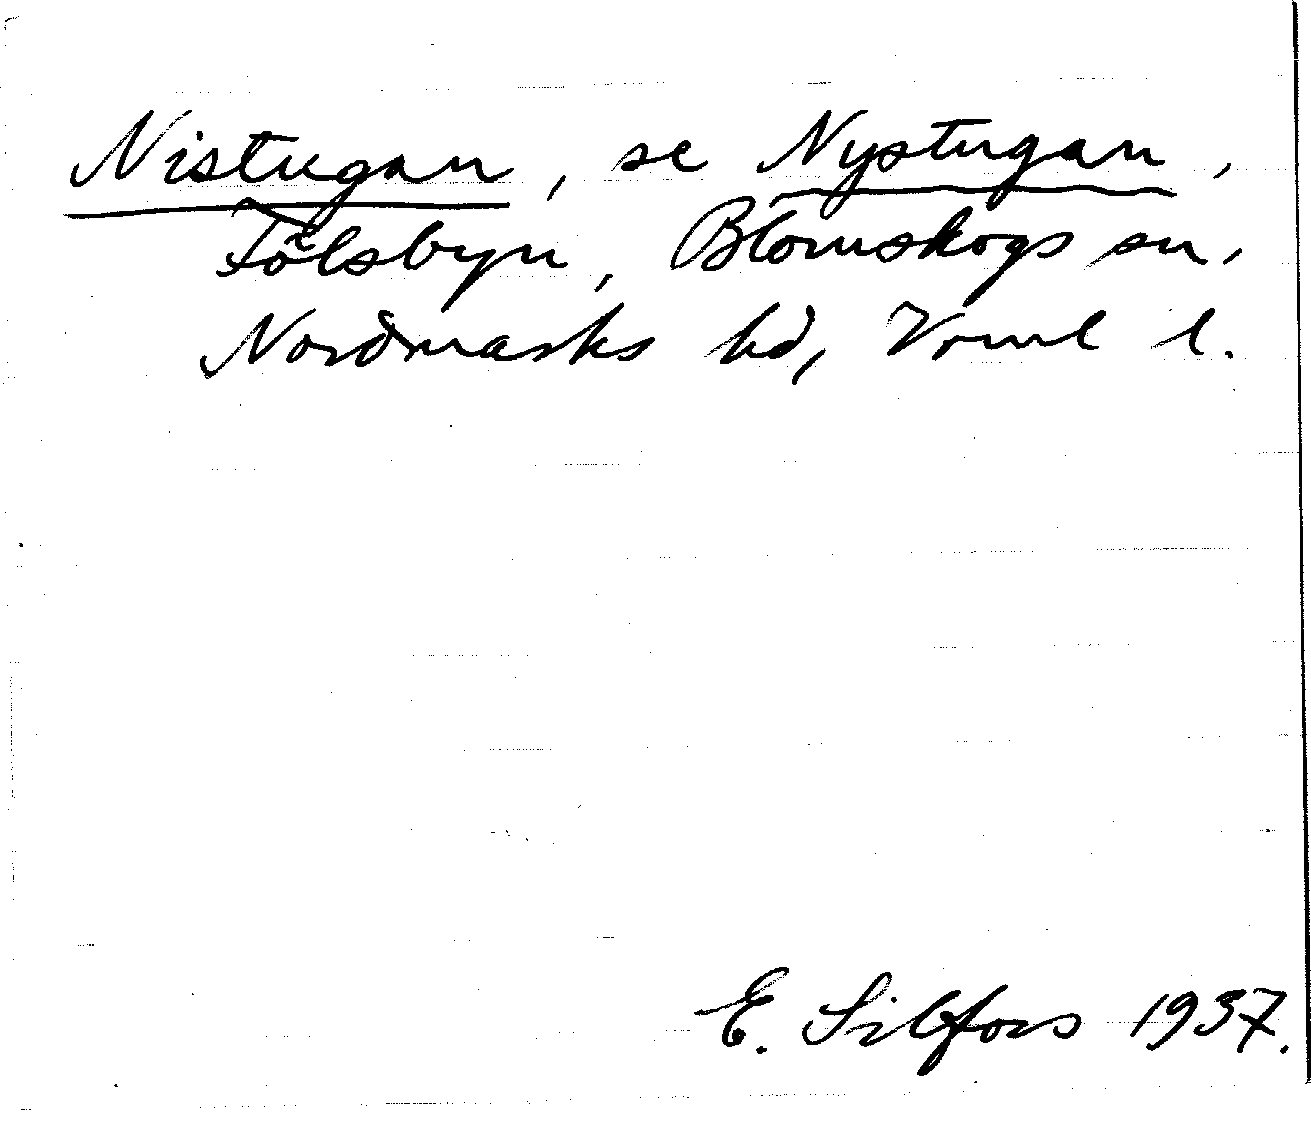 Nistugan, se Nystugan,
Fölsbyn, Blomskogs sn,
Nordmarks hd, Vrml l.
E. Silfors 1937.